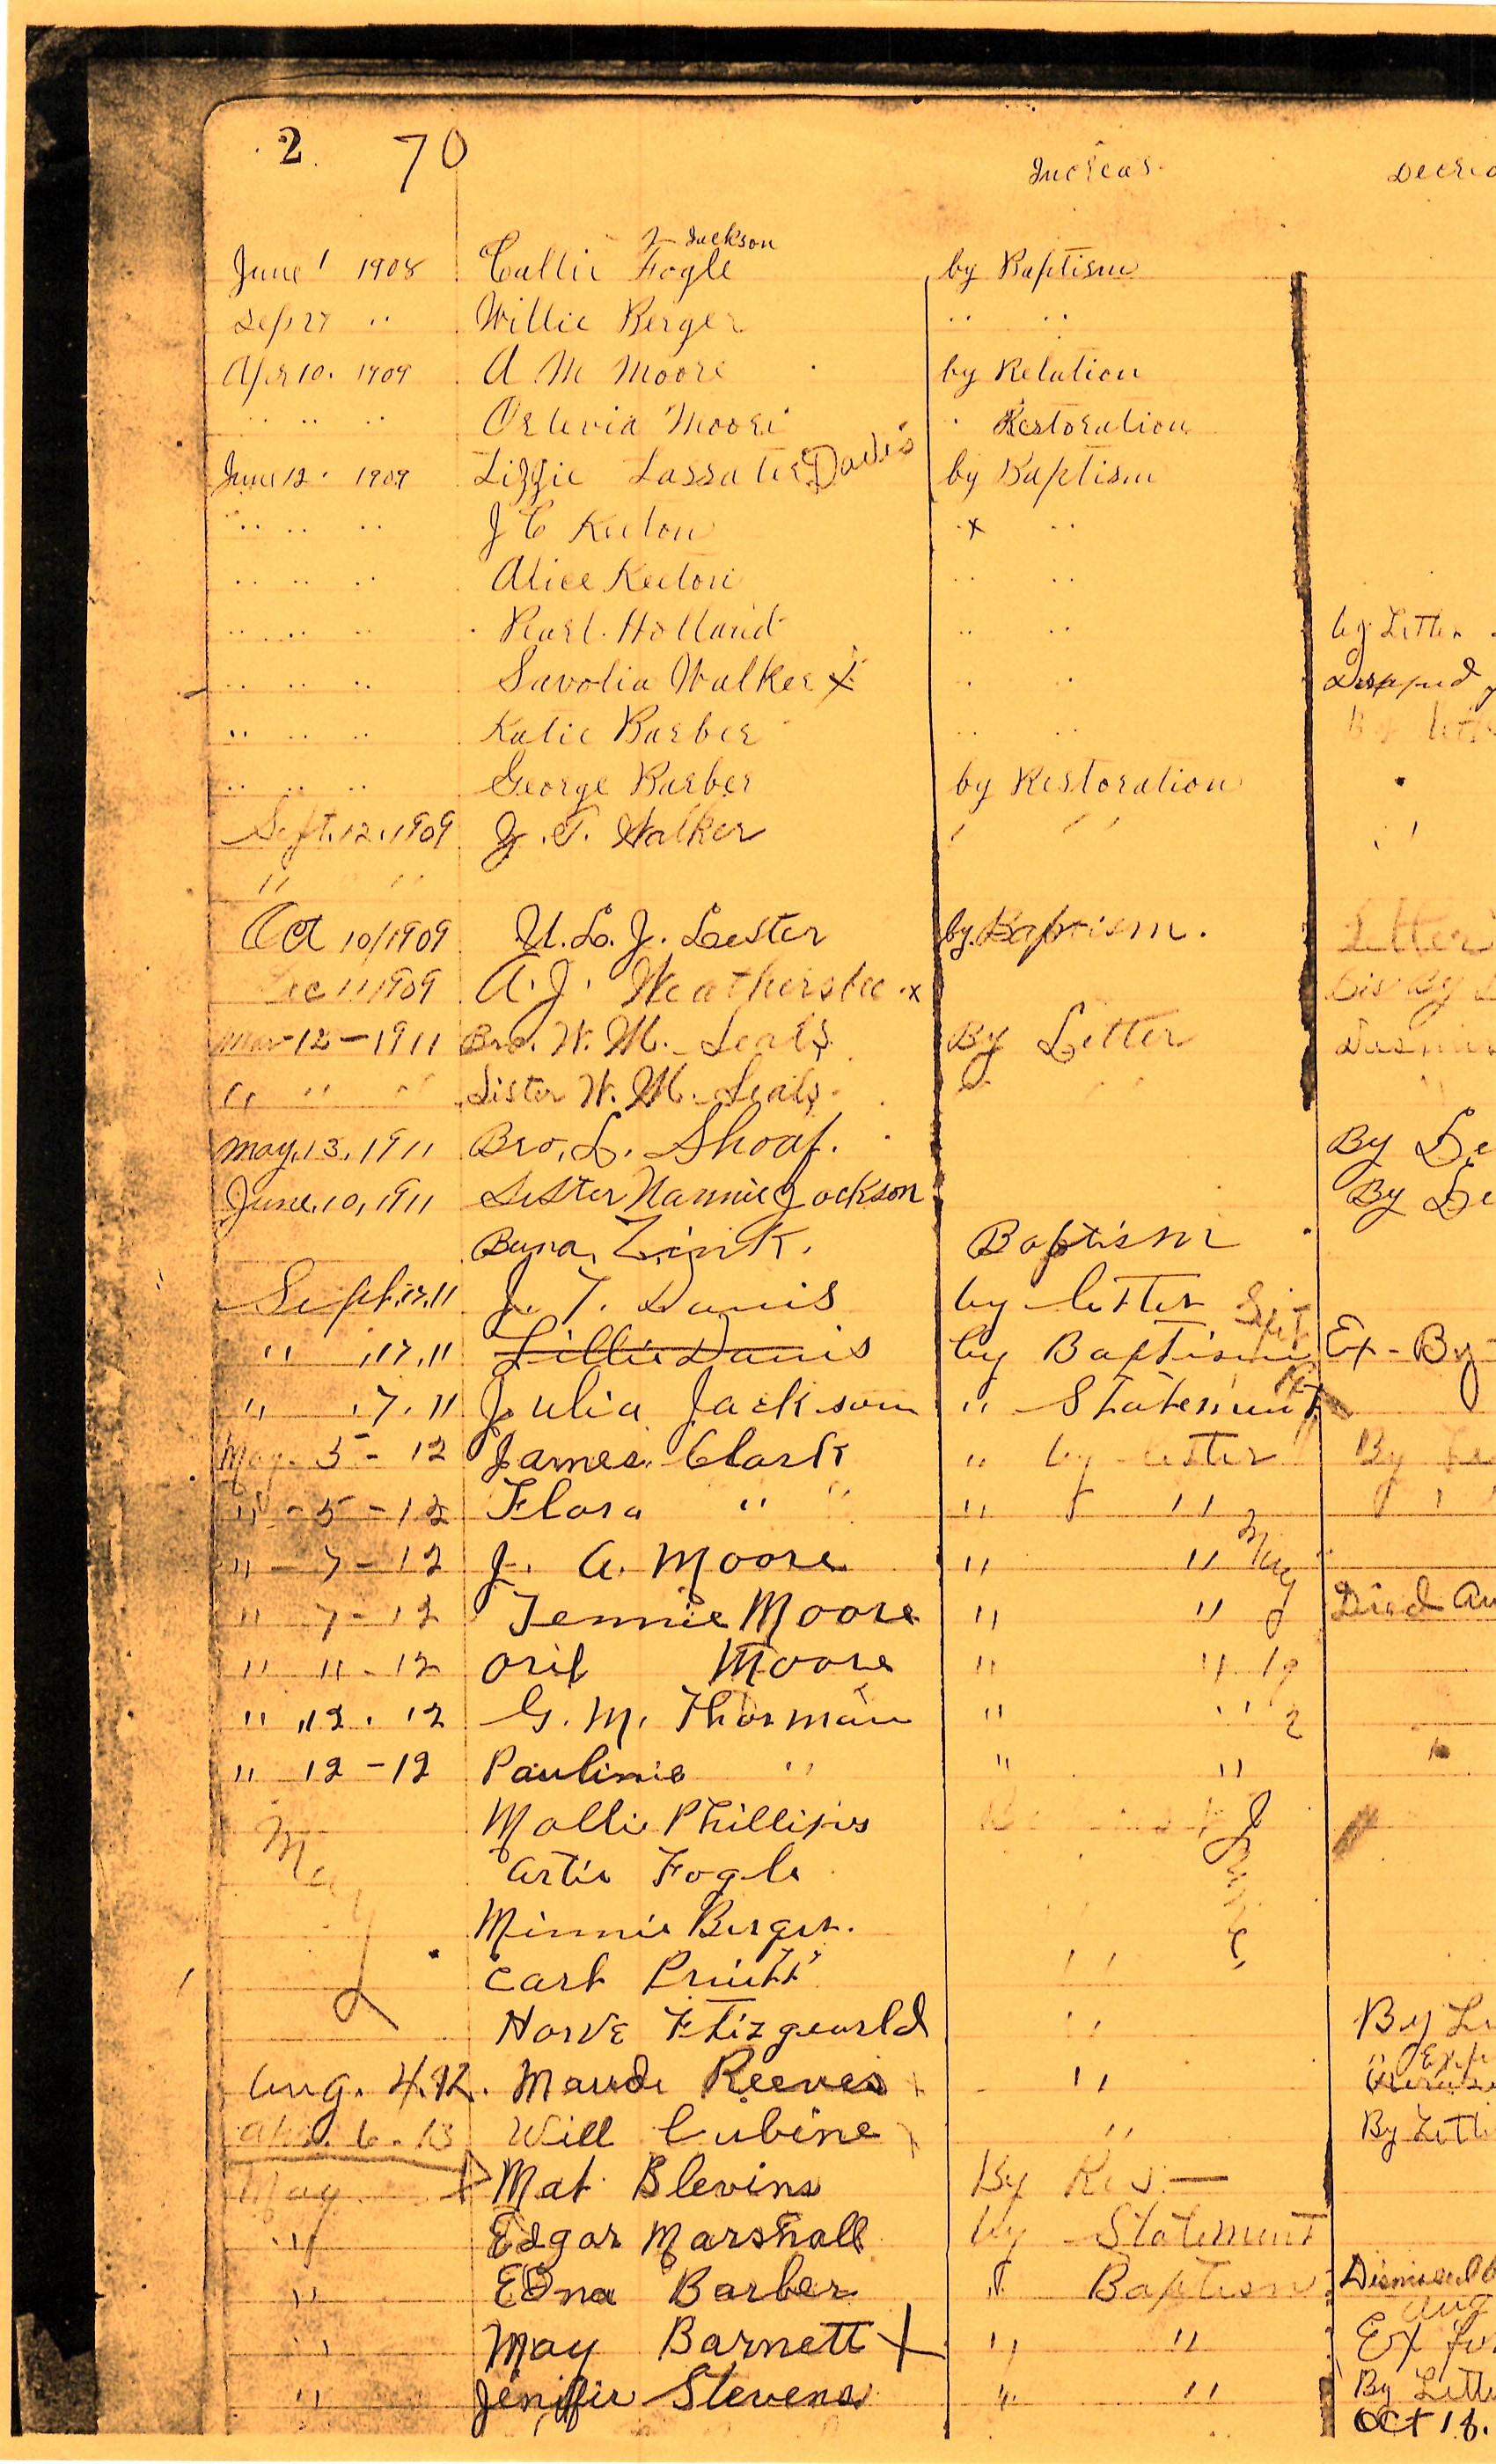 2 70
Increas. Decrea
Jackson
June 1 1908 Callie Fogle by Baptism
Sep 27 " Willie Berger " "
Apr 10. 1909 A M Moore by Relation
" " " Moore " Restoration
June 12. 1909 Lizzie Lassater Davis by Baptism
" " " J C Keeton x "
" " " Alice Keeton " "
" " " Pearl Holland " " by Letter
" " " Savolia Walker x " "
" " " Katie Barber " " By
" " " George Barber by Restoration
Sept. 12. 1909 J. T. Walker " "
" "
Oct 10/1909 U. L. J. Lester by Baptism. Letter
Dec 11 1909 A. J. Weathersbee x Dis By
Mar-12-1911 Bro. W. M. Seals By Letter
" " " Sister W. M. Seals " "
May. 13, 1911 Bro. L. Shoaf. By Le
June. 10, 1911 Sister Nannie Jackson By Le
Zink. Baptism
Sept. 17. 11 J. T. Davis by letter Sept
" . 17. 11 Lillie Davis by Baptism Ex - By
" . 7. 11 Julia Jackson " Statement
May. 5 - 12 James Clark " by letter By Le
" - 5 - 12 Flora " " " "
" - 7 - 12 J. A. Moore " " May
" 7 - 12 Jennie Moore " " Died Au
" 11 - 12 Moore " " 19
" 12. 12 G. M. Thormain " " 2
" 12 - 12 Paulinie " " "
Mollie Phillips June
May Artie Fogle
Minnie Berger. "
Carl Pruitt "
Horve Ftizgeurld " By Le
Aug. 4. 12. Maude Reeves " " Exp
Apr. 6. 13 Will Cubine " By Lette
May Mat Blevins By Res. —
" Edgar Marshall by Statement
" Edna Barber " Baptism Dismissed b
Aug
" May Barnett x " " Ex for
" Jennifir Stevens " " By Lette
Oct 18.